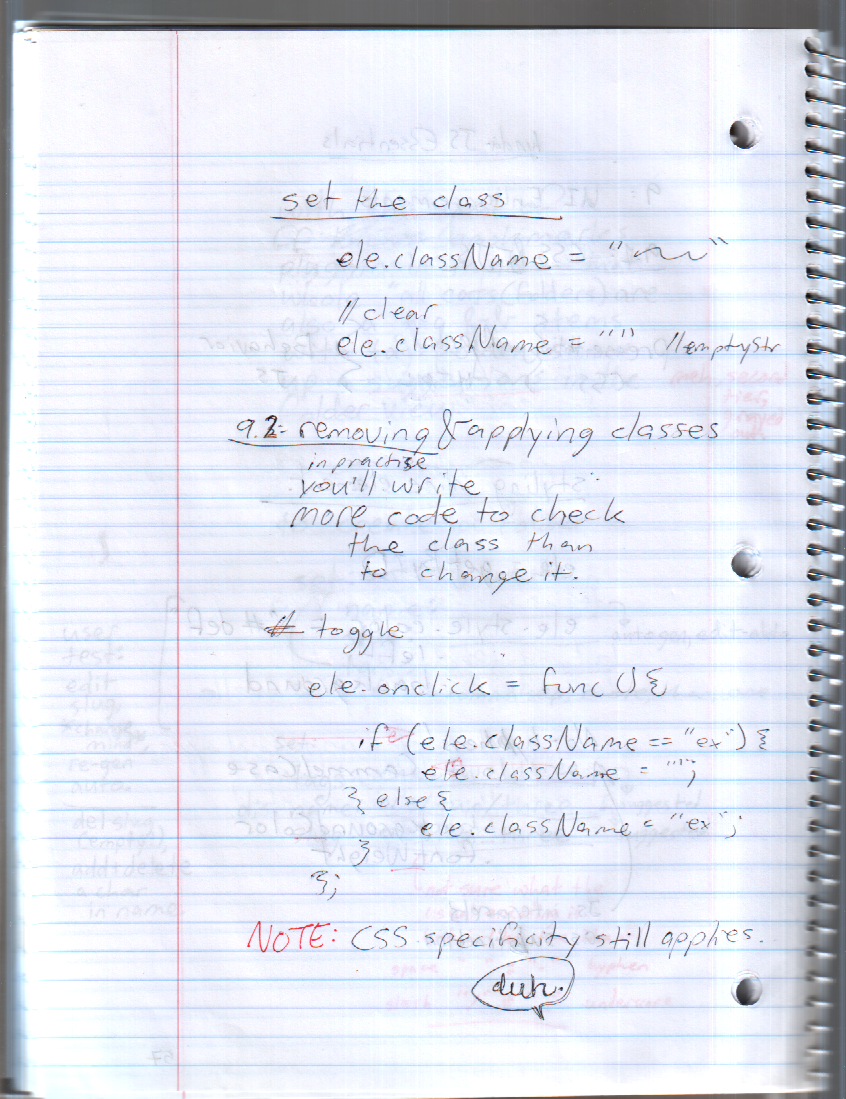 set the class
ele.className = " "
// clear
ele.className = "" // emptyStr
9.2: removing & applying classes
in practise
you'll write
more code to check
the class than
to change it.
toggle
ele.onclick = func () {
if (ele.className == "ex") {
ele.className = "";
} else {
ele.className = "ex";
}
};
NOTE: CSS specificity still applies.
duh.